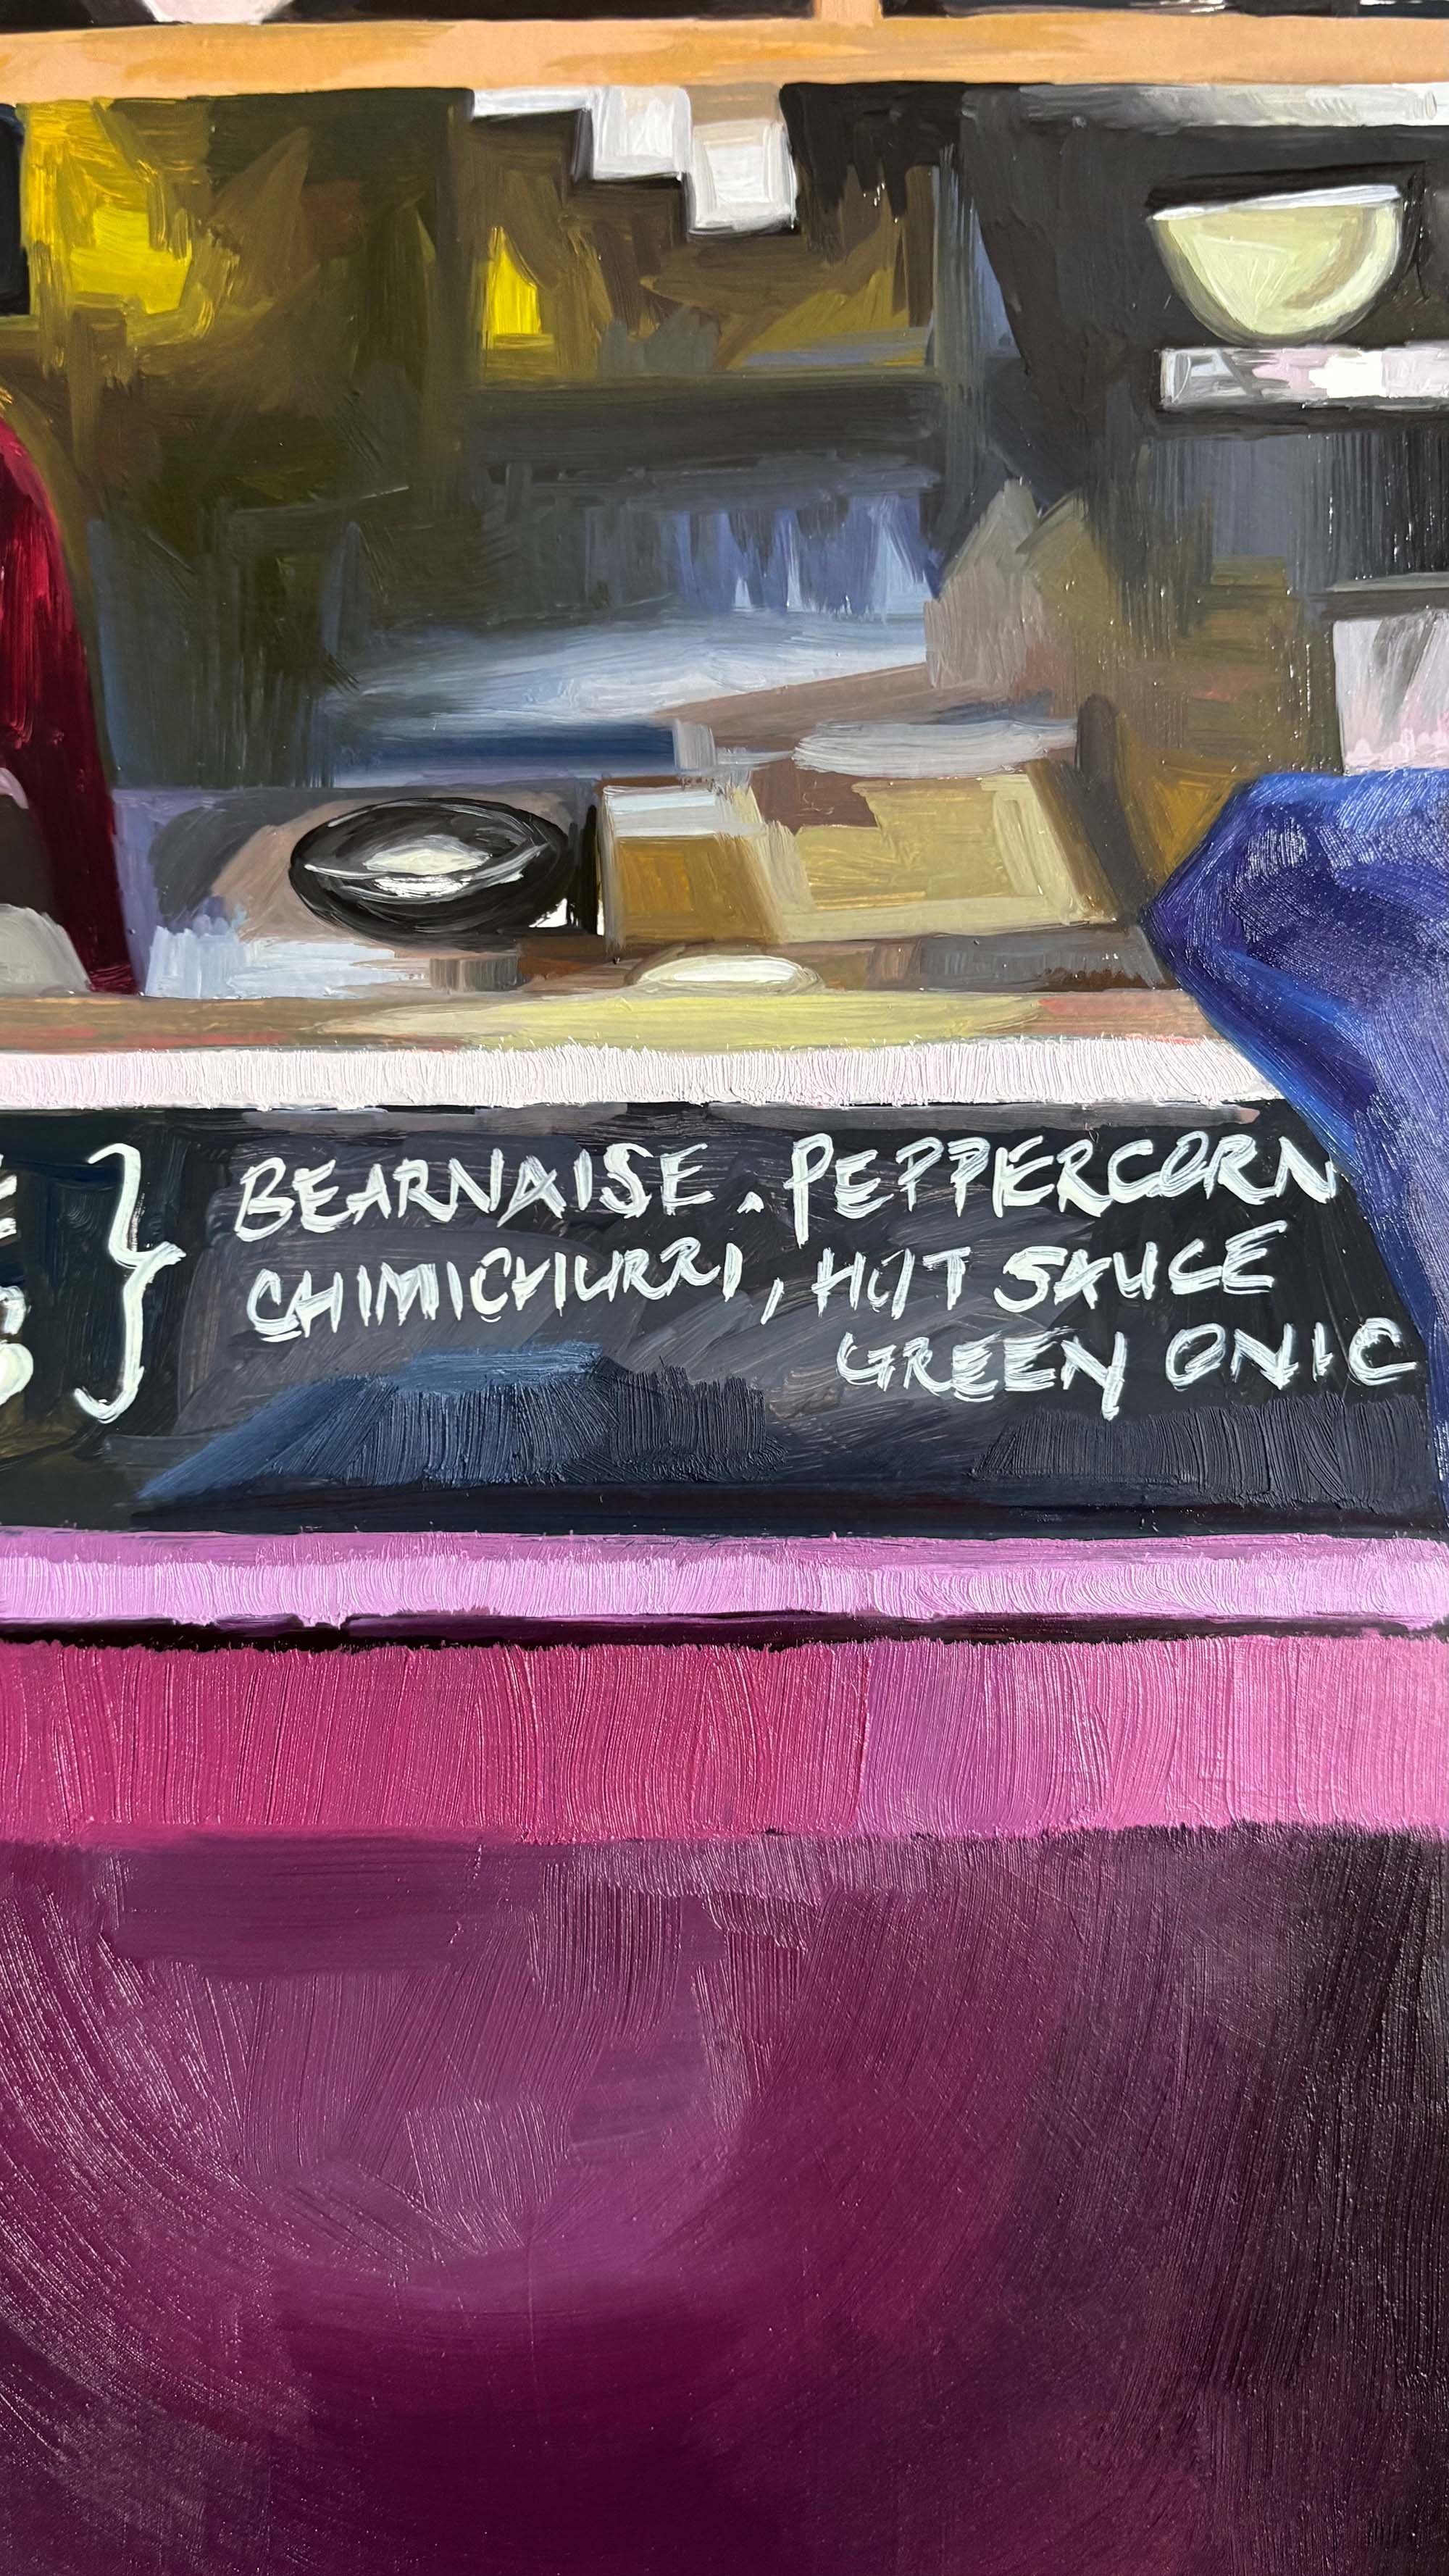 } BEARNAISE . PEPPERCORN
CHIMICHURRI, HOT SAUCE
GREEN ONIC